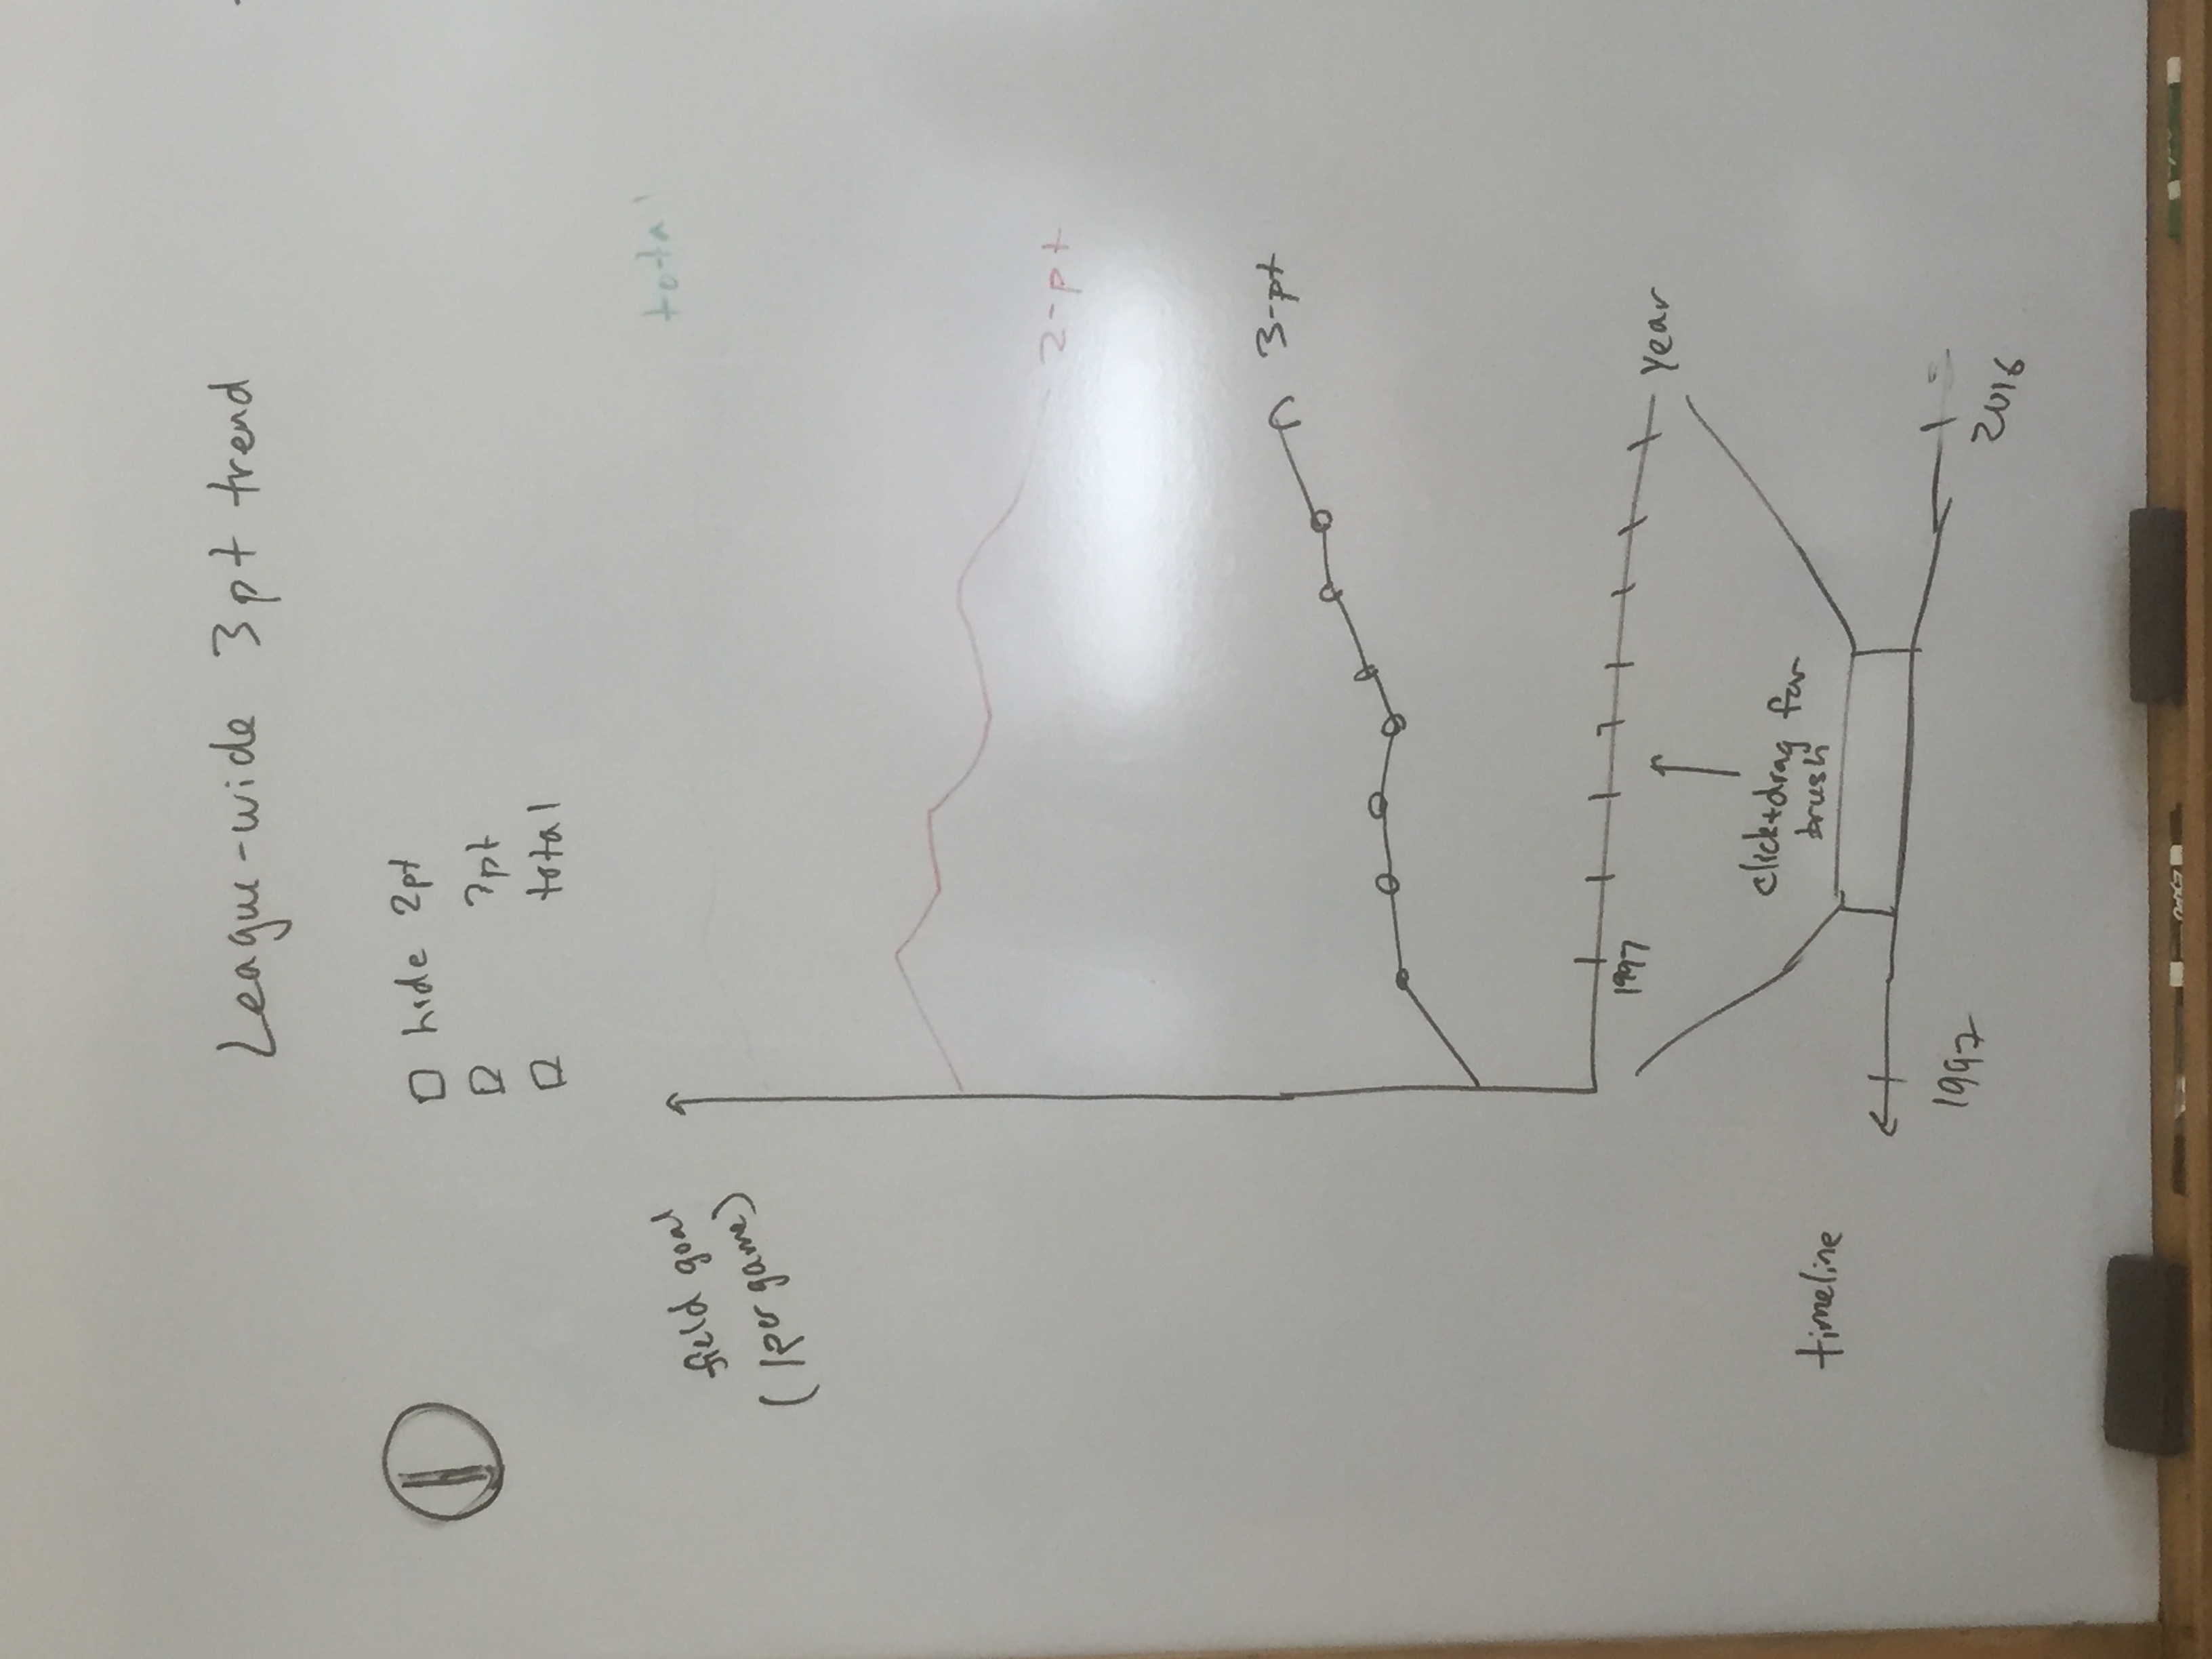 League-wide 3pt trend
1
hide 2pt
3pt
total
field goal
(per game)
total
2-pt
3-pt
1997
year
click+drag for
brush
timeline
1997
2016